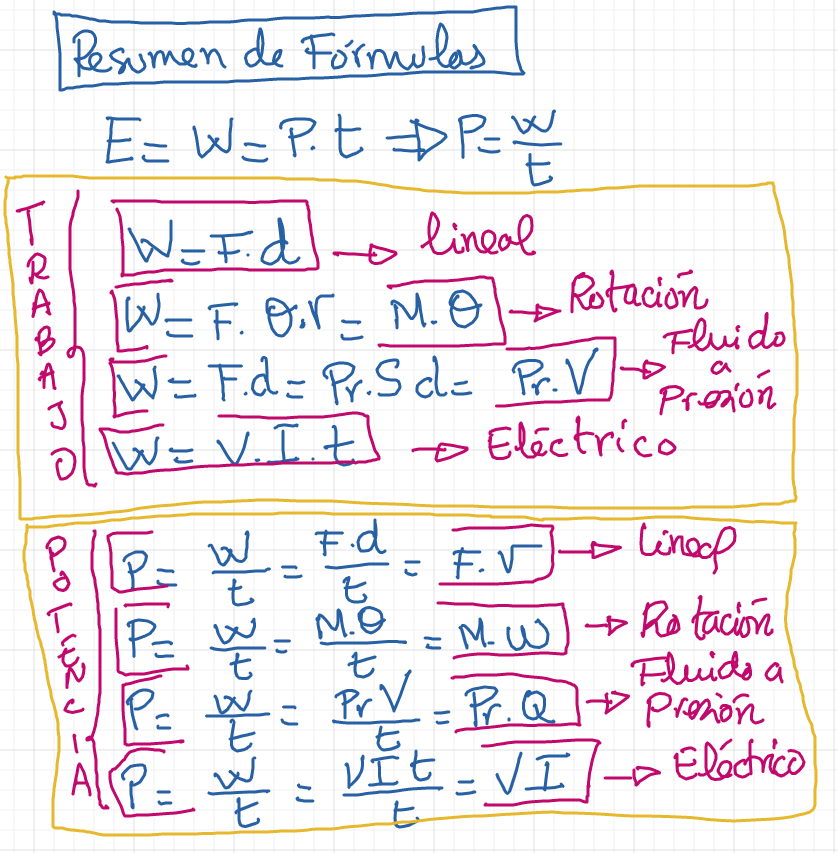 Resumen de Fórmulas
E = W = P. t ⇒ P = W/t
TRABAJO
W = F. d → lineal
W = F. θ.r = M. θ → Rotación
W = F.d = Pr.S d = Pr. V → Fluido a Presión
W = V. I. t → Eléctrico
POTENCIA
P = W/t = F.d/t = F. V → Lineal
P = W/t = M.θ/t = M. W → Rotación
P = W/t = Pr V/t = Pr. Q → Fluido a Presión
P = W/t = V I t/t = V I → Eléctrico